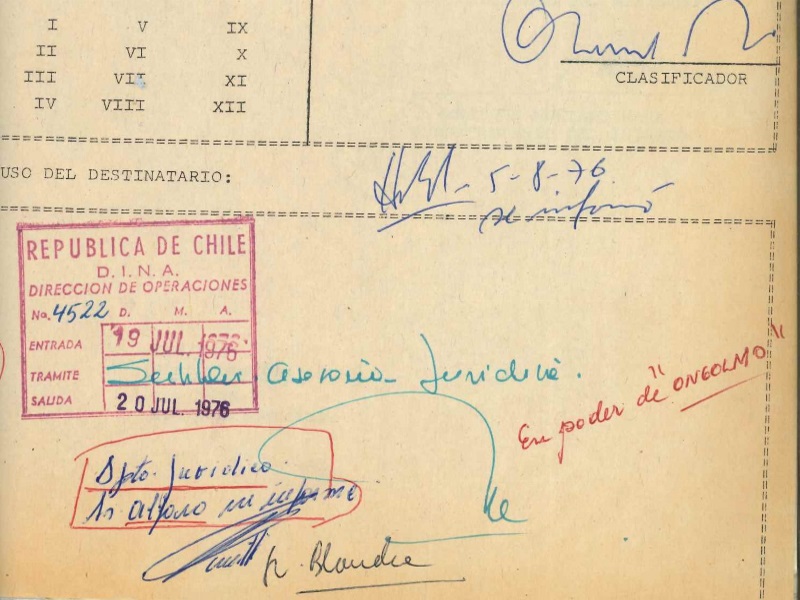 I V IX
II VI X
III VII XI
IV VIII XII
CLASIFICADOR
USO DEL DESTINATARIO:
5-8-76
se informó
REPUBLICA DE CHILE
D.I.N.A.
DIRECCION DE OPERACIONES
No. 4522 D. M. A.
ENTRADA 19 JUL. 1976
TRAMITE
SALIDA 20 JUL. 1976
asesoria Juridica.
En poder de "ONGOLMO"
Dpto. Juridico
alfaro informe